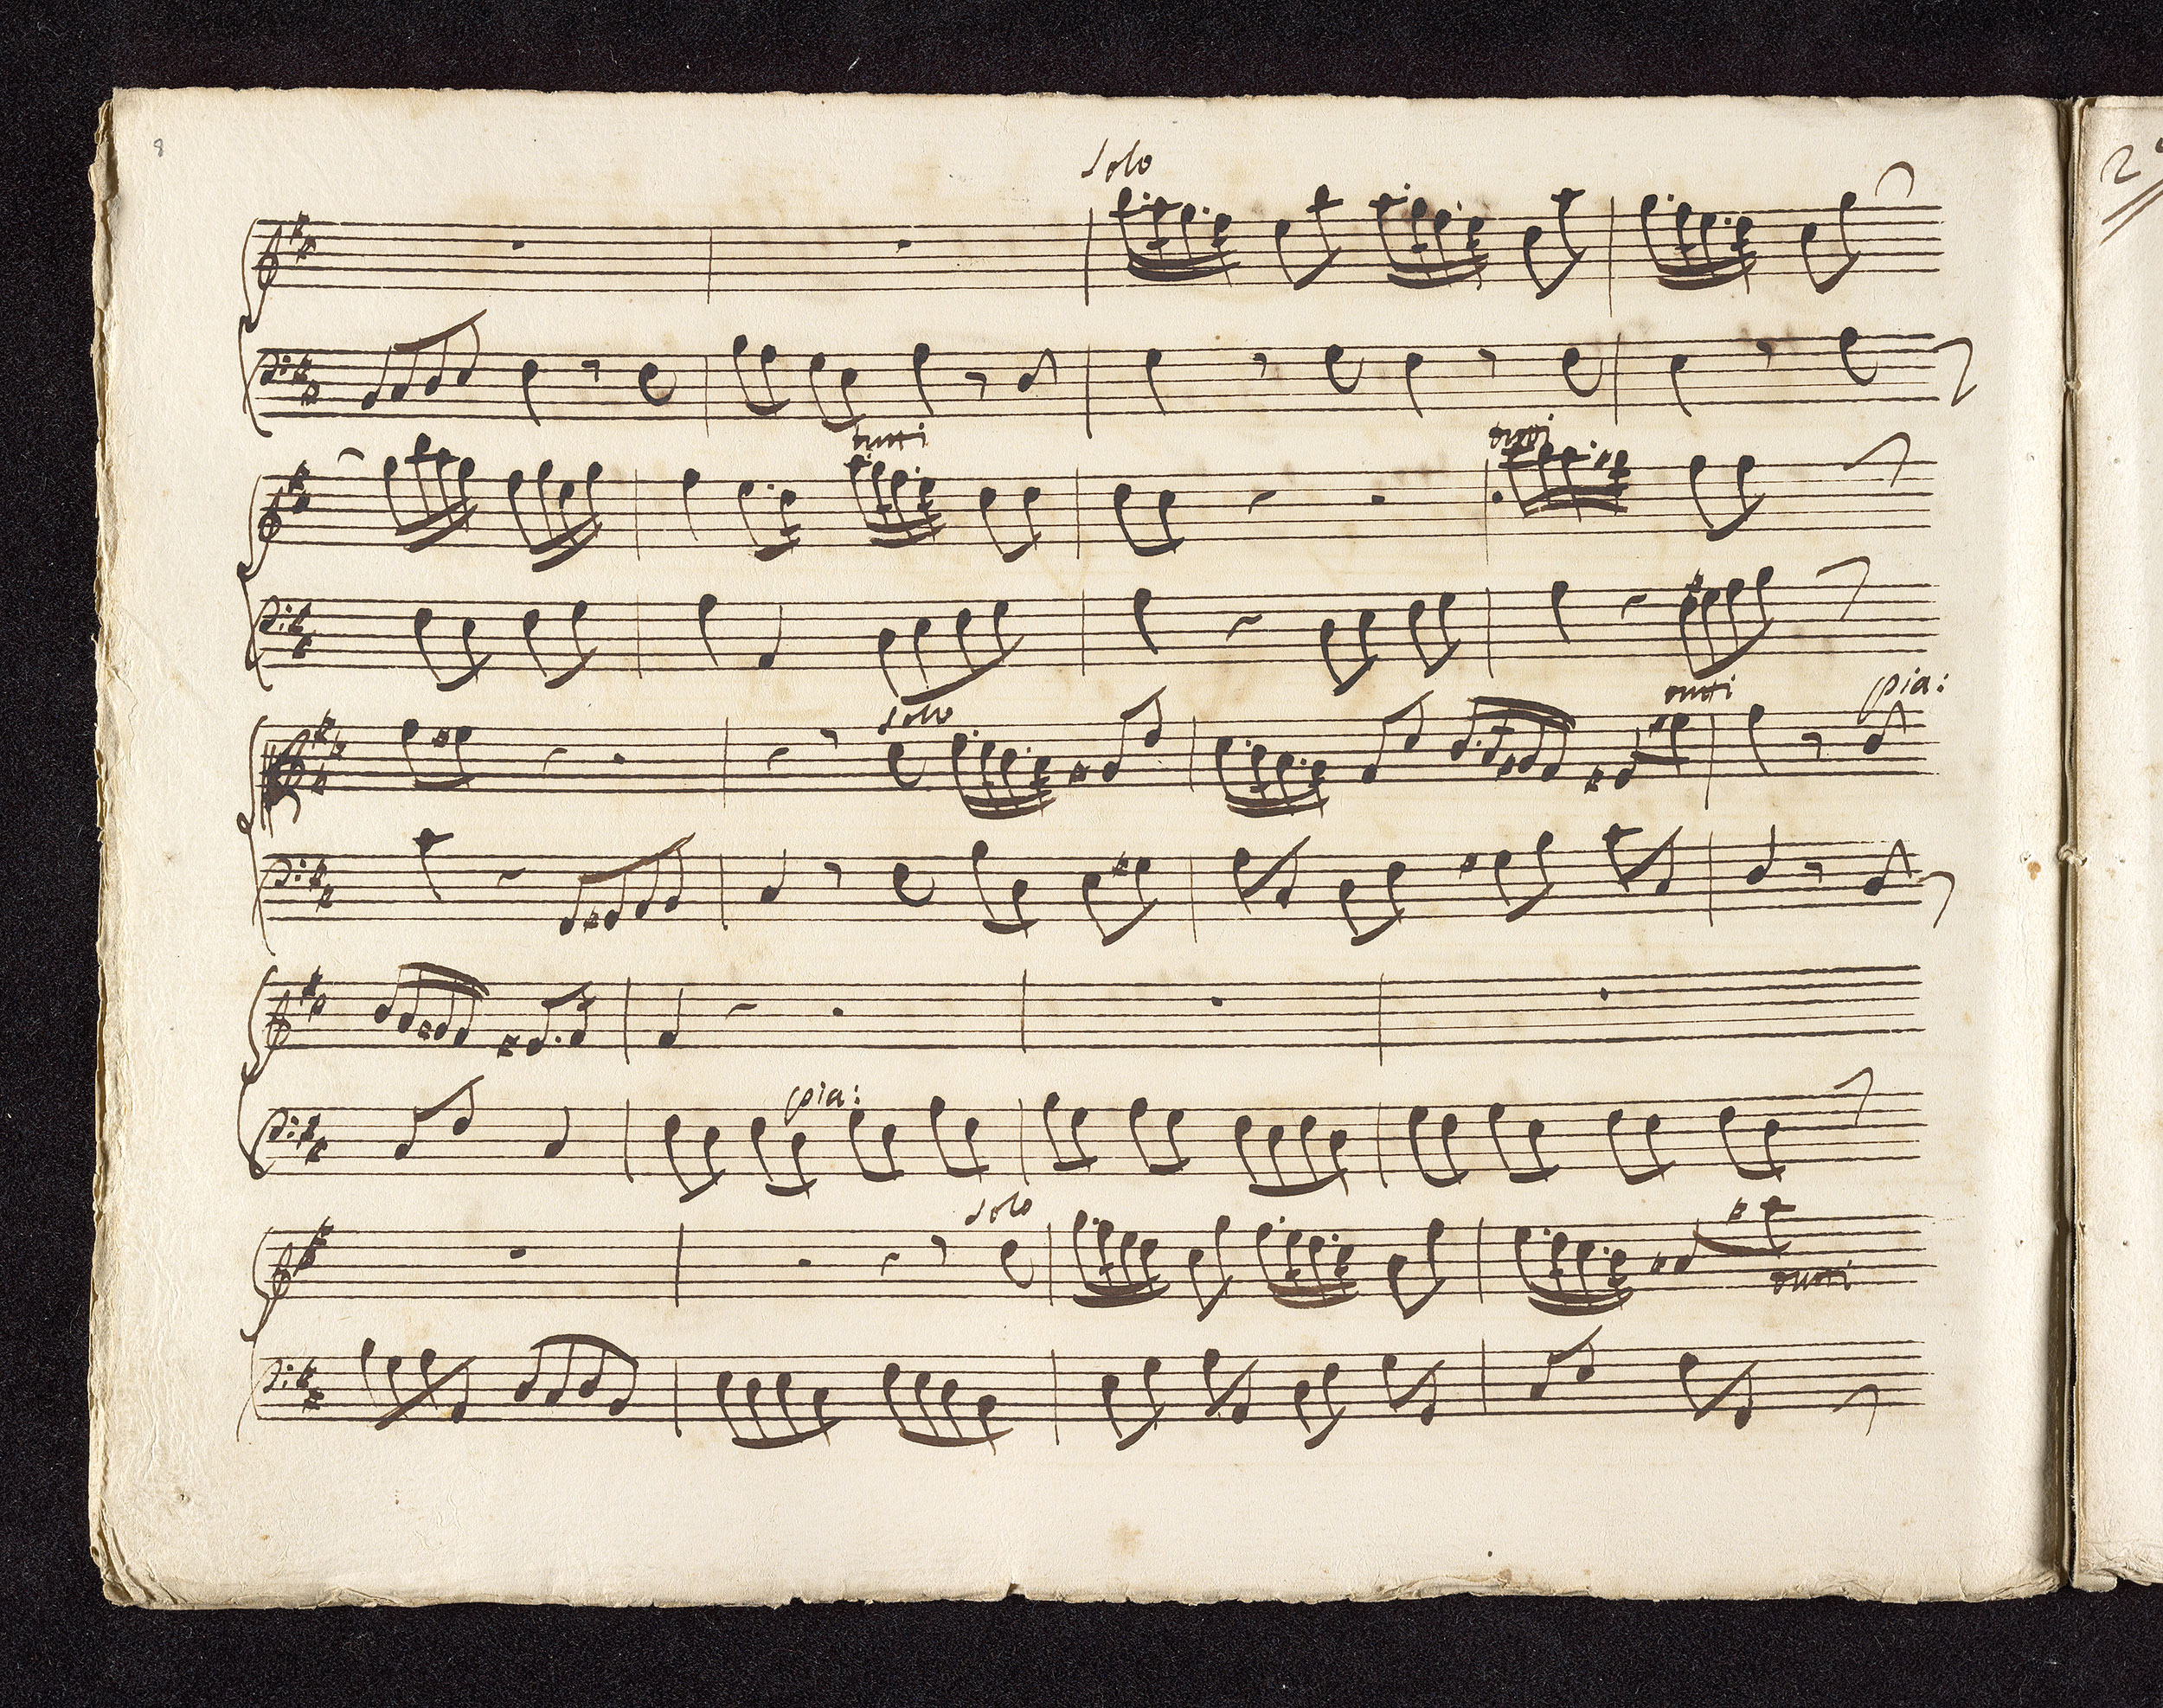 8
solo
2
tutti
tutti
solo
tutti
pia:
pia:
solo
tutti